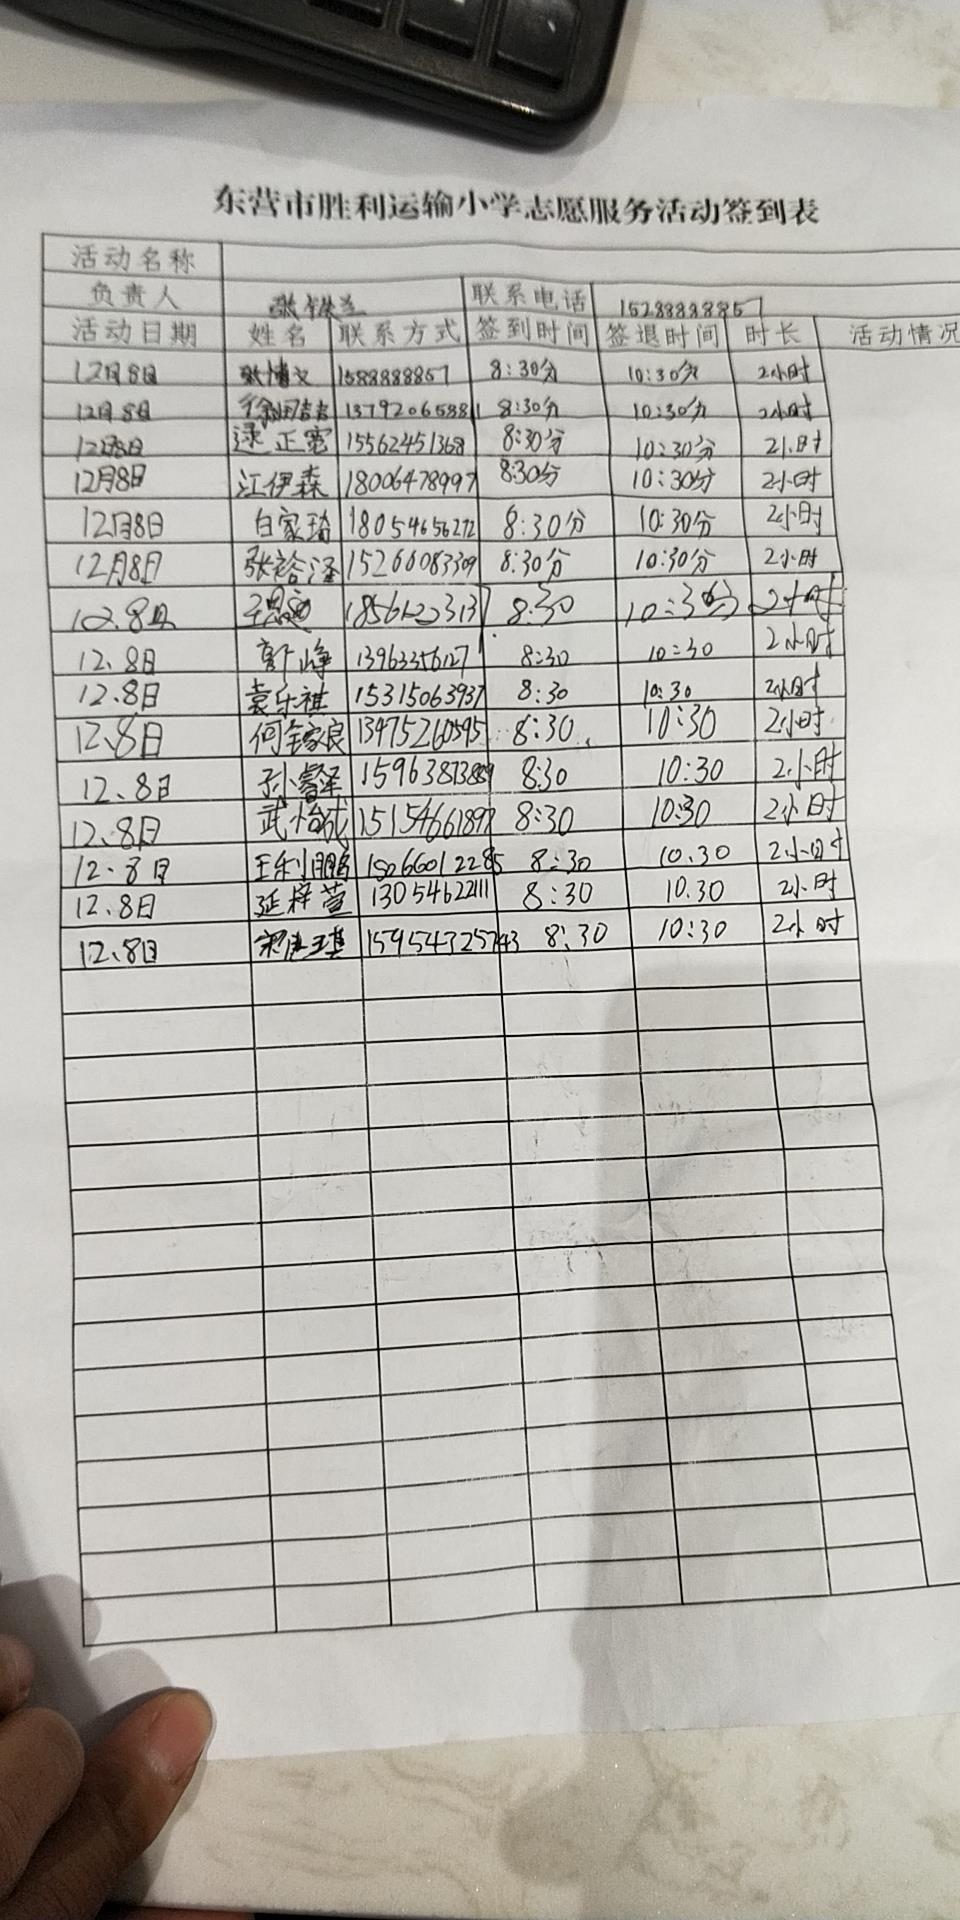 东营市胜利运输小学志愿服务活动签到表
活动名称
负责人 张铁兰 联系电话 15288888857
活动日期 姓名 联系方式 签到时间 签退时间 时长 活动情况
12月8日 张倩文 1588888857 8:30分 10:30分 2小时
12月8日 8:30分 10:30分 2小时
12月8日 逯正宽 15562451368 8:30分 10:30分 2小时
12月8日 江伊森 18006478997 8:30分 10:30分 2小时
12月8日 白家琦 18054656272 8:30分 10:30分 2小时
12月8日 张裕泽 15266083309 8:30分 10:30分 2小时
12.8日 8:30 10:30分 2小时
12.8日 13963356127 8:30 10:30 2小时
12.8日 袁乐祺 15315063937 8:30 10:30 2小时
12、8日 何家良 13475260595 8:30 10:30 2小时
12、8日 孙睿泽 8:30 10:30 2小时
12、8日 武怡成 15154661897 8:30 10:30 2小时
12、8日 王利鹏 15066012285 8:30 10.30 2小时
12.8日 延梓萱 13054622111 8:30 10.30 2小时
12、8日 15954325743 8:30 10:30 2小时